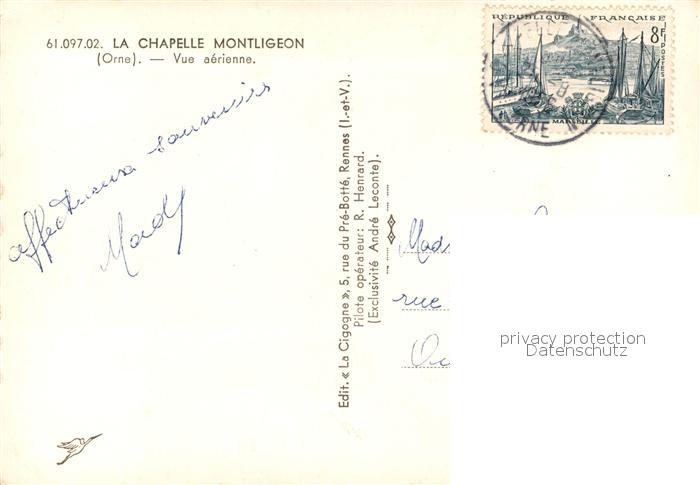 61.097.02. LA CHAPELLE MONTLIGEON
(Orne). — Vue aérienne.
affectueux souvenirs
Mady
Edit. « La Cigogne », 5, rue du Pré-Botté, Rennes (I.-et-V.).
Pilote opérateur: R. Henrard.
(Exclusivité André Leconte).
RÉPUBLIQUE FRANÇAISE
8F
POSTES
MARSEILLE
ORNE
rue
privacy protection
Datenschutz